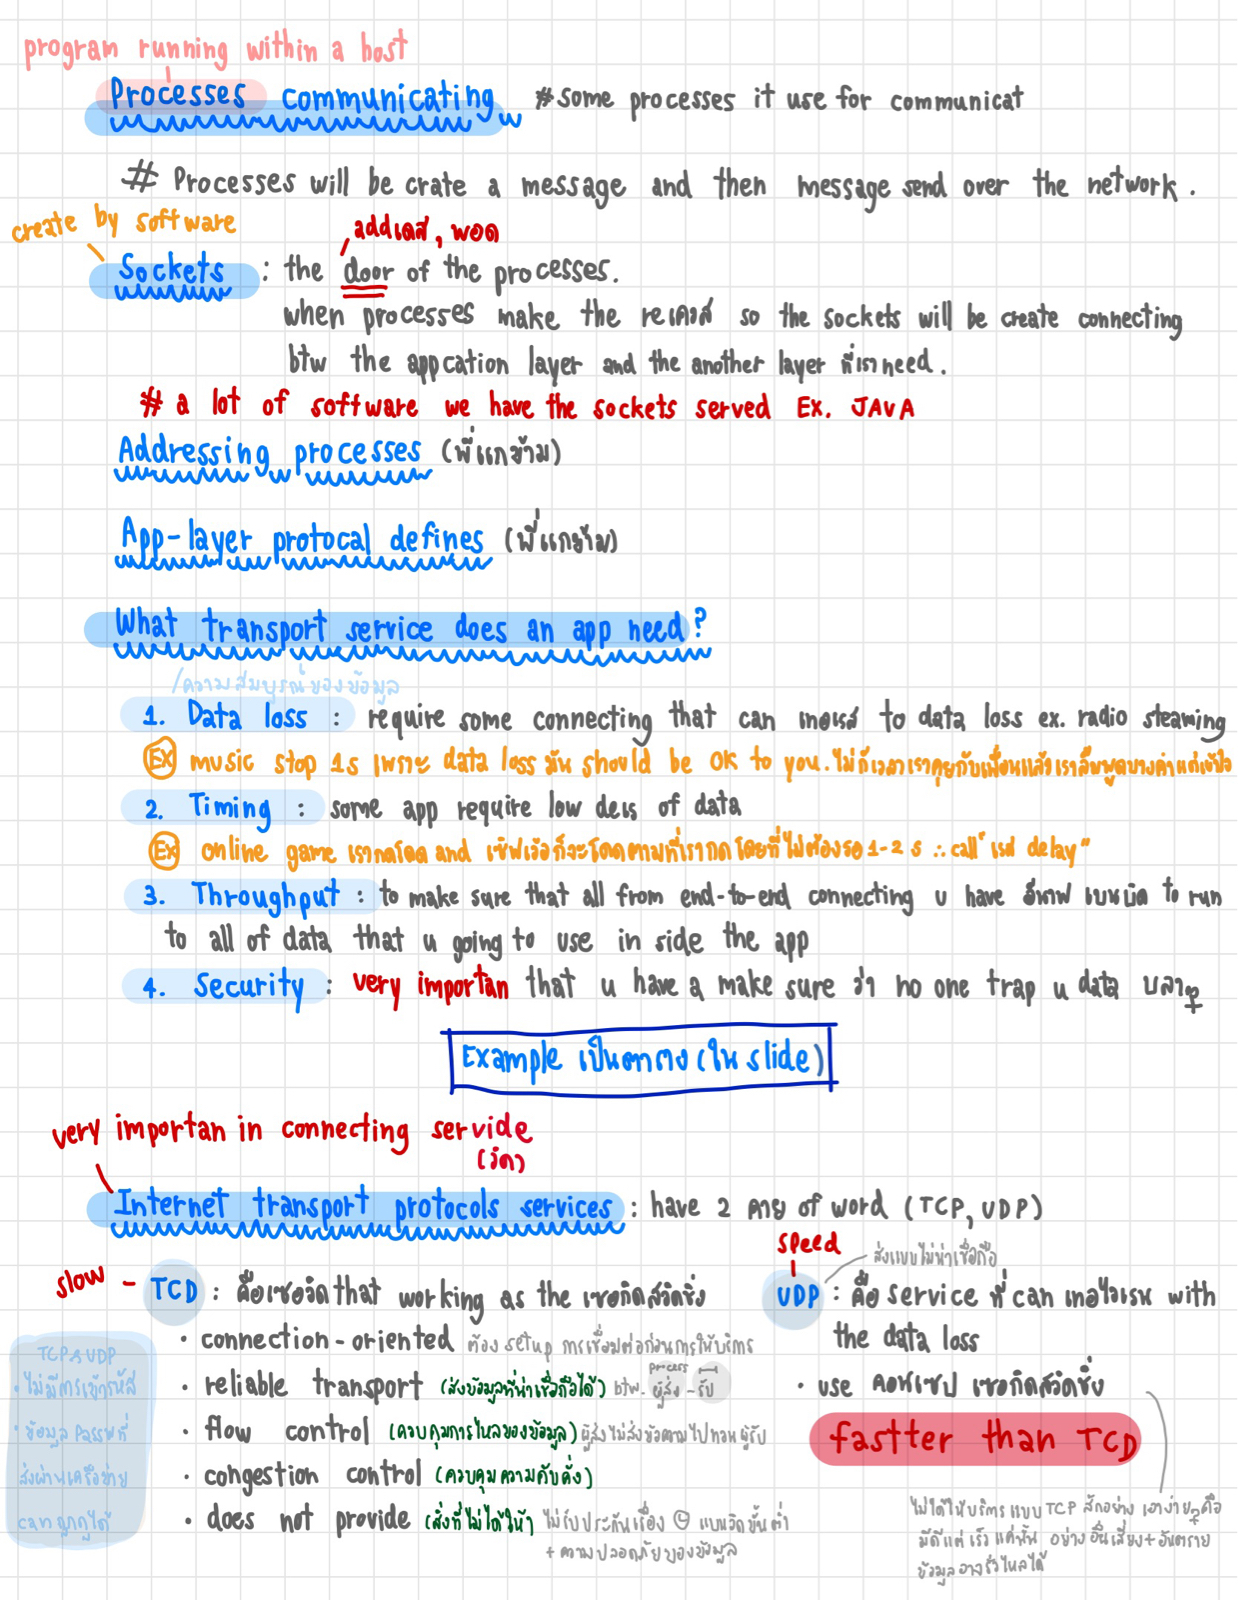 program running within a host
Processes communicating #some processes it use for communicat
# Processes will be crate a message and then message send over the network.
create by software
addเดส, พอด
Sockets : the door of the processes.
when processes make the รเควส so the sockets will be create connecting
btw the appcation layer and the another layer ที่เรา need.
# a lot of software we have the sockets served Ex. JAVA
Addressing processes (พี่แกข้าม)
App-layer protocal defines (พี่แกข้าม)
What transport service does an app need?
ความสมบูรณ์ของข้อมูล
1. Data loss : require some connecting that can to data loss ex. radio steaming
Ex music stop 1s เพราะ data loss มัน should be OK to you. ไม่ก็เวลาเราคุยกับเพื่อนแล้วเราลืมพูดบางคำแต่เข้าใจ
2. Timing : some app require low deis of data
Ex online game เรากดโดด and เซิฟเวอก็จะโดดตามที่เรากด โดยที่ไม่ต้องรอ 1-2 s ∴ call "เรท delay"
3. Throughput : to make sure that all from end-to-end connecting u have อีนาฟ แบนบิด to run
to all of data that u going to use in side the app
4. Security : very importan that u have a make sure ว่า no one trap u data บลาๆ
Example เป็นตาราง (ใน slide)
very importan in connecting servide
(วิด)
Internet transport protocols services : have 2 คาย of word (TCP, UDP)
slow - TCD : คือเซอวิด that working as the เซอกิดสวิดชิ่ง
• connection-oriented ต้อง setup การเชื่อมต่อก่อนการให้บริการ
• reliable transport (ส่งข้อมูลที่น่าเชื่อถือได้) btw. process ผู้ส่ง - รับ
• flow control (ควบคุมการไหลของข้อมูล) ผู้ส่งไม่ส่งข้อความไปทวมผู้รับ
• congestion control (ควบคุมความคับคั่ง)
• does not provide (สิ่งที่ไม่ได้ให้) ไม่รับประกันเรื่อง แบนวิดขั้นต่ำ
+ ความปลอดภัยของข้อมูล
TCP & UDP
• ไม่มีการเข้ารหัส
• ข้อมูล Pass ที่
ส่งผ่านเครือข่าย
can ถูกดูได้
speed
ส่งแบบไม่น่าเชื่อถือ
UDP : คือ service ที่ can with
the data loss
• use คอนเซป เซอกิดสวิดชิ่ง
fastter than TCD
ไม่ได้ให้บริการแบบ TCP สักอย่าง เอาง่ายๆคือ
มีดีแต่ เร็ว แค่นั้น อย่างอื่นเสี่ยง + อันตราย
ข้อมูลอาจรั่วไหลได้